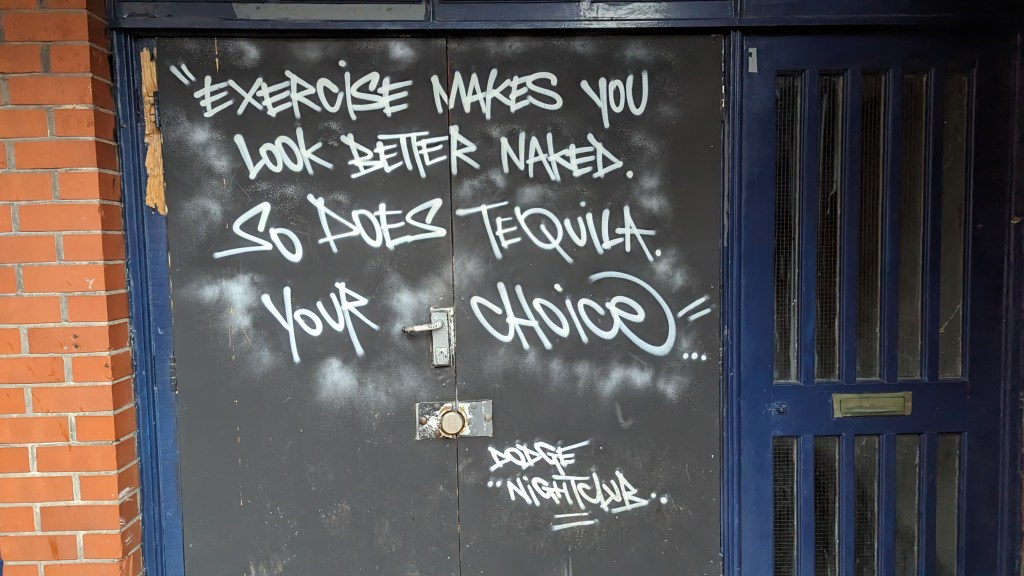 "EXERCISE MAKES YOU
LOOK BETTER NAKED.
SO DOES TEQUILA.
YOUR CHOICE"...
DODGE
"NIGHTCLUB..